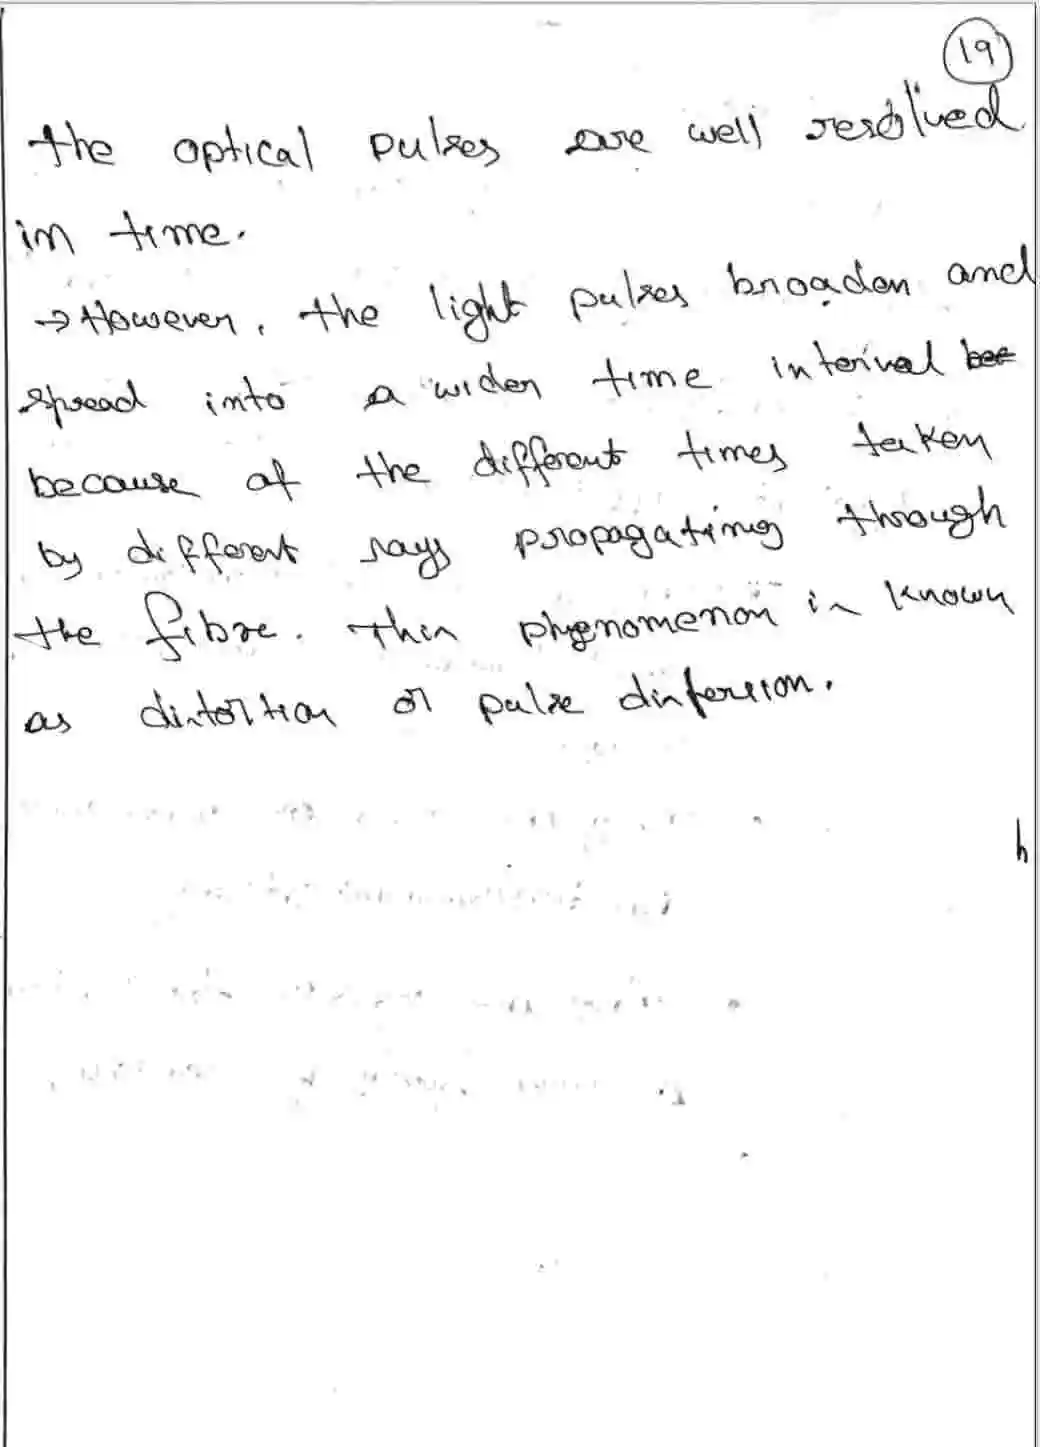 19
the optical pulses are well resolved
in time.
→ However, the light pulses broaden and
spread into a wider time interval bec
because of the different times taken
by different rays propagating through
the fibre. This phenomenon is known
as distortion or pulse dispersion.
h